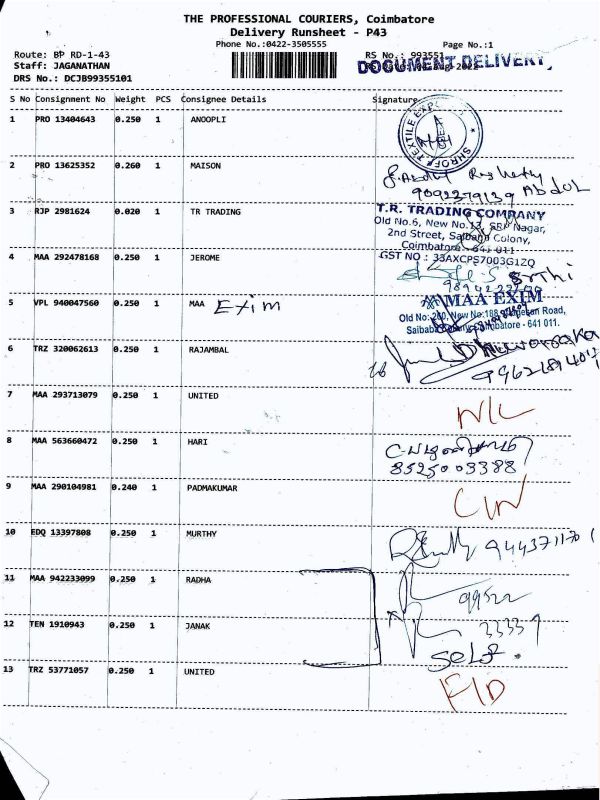 THE PROFESSIONAL COURIERS, Coimbatore
Delivery Runsheet - P43
Phone No.:0422-3505555 Page No.:1
Route: BP RD-1-43 RS No.: 993551
Staff: JAGANATHAN DOCUMENT DELIVERY
DRS No.: DCJB99355101
S No Consignment No Weight PCS Consignee Details Signature
1 PRO 13404643 0.250 1 ANOOPLI
SHROFF TEXTILE
2 PRO 13625352 0.260 1 MAISON
9092279139 Abdul
3 RJP 2981624 0.020 1 TR TRADING
T.R. TRADING COMPANY
Old No.6, New No.13, SRP Nagar,
2nd Street, Saibaba Colony,
Coimbatore - 641 011
GST NO : 33AXCPS7003G1ZQ
4 MAA 292478168 0.250 1 JEROME
5 VPL 940047560 0.250 1 MAA Exim
MAA EXIM
Road,
Saibaba Colony, Coimbatore - 641 011.
6 TRZ 320062613 0.250 1 RAJAMBAL
7 MAA 293713079 0.250 1 UNITED
N/L
8 MAA 563660472 0.250 1 HARI
8525003388
9 MAA 290104981 0.240 1 PADMAKUMAR
10 EDQ 13397808 0.250 1 MURTHY
9443711701
11 MAA 942233099 0.250 1 RADHA
99522
12 TEN 1910943 0.250 1 JANAK
33337
Self.
13 TRZ 53771057 0.250 1 UNITED